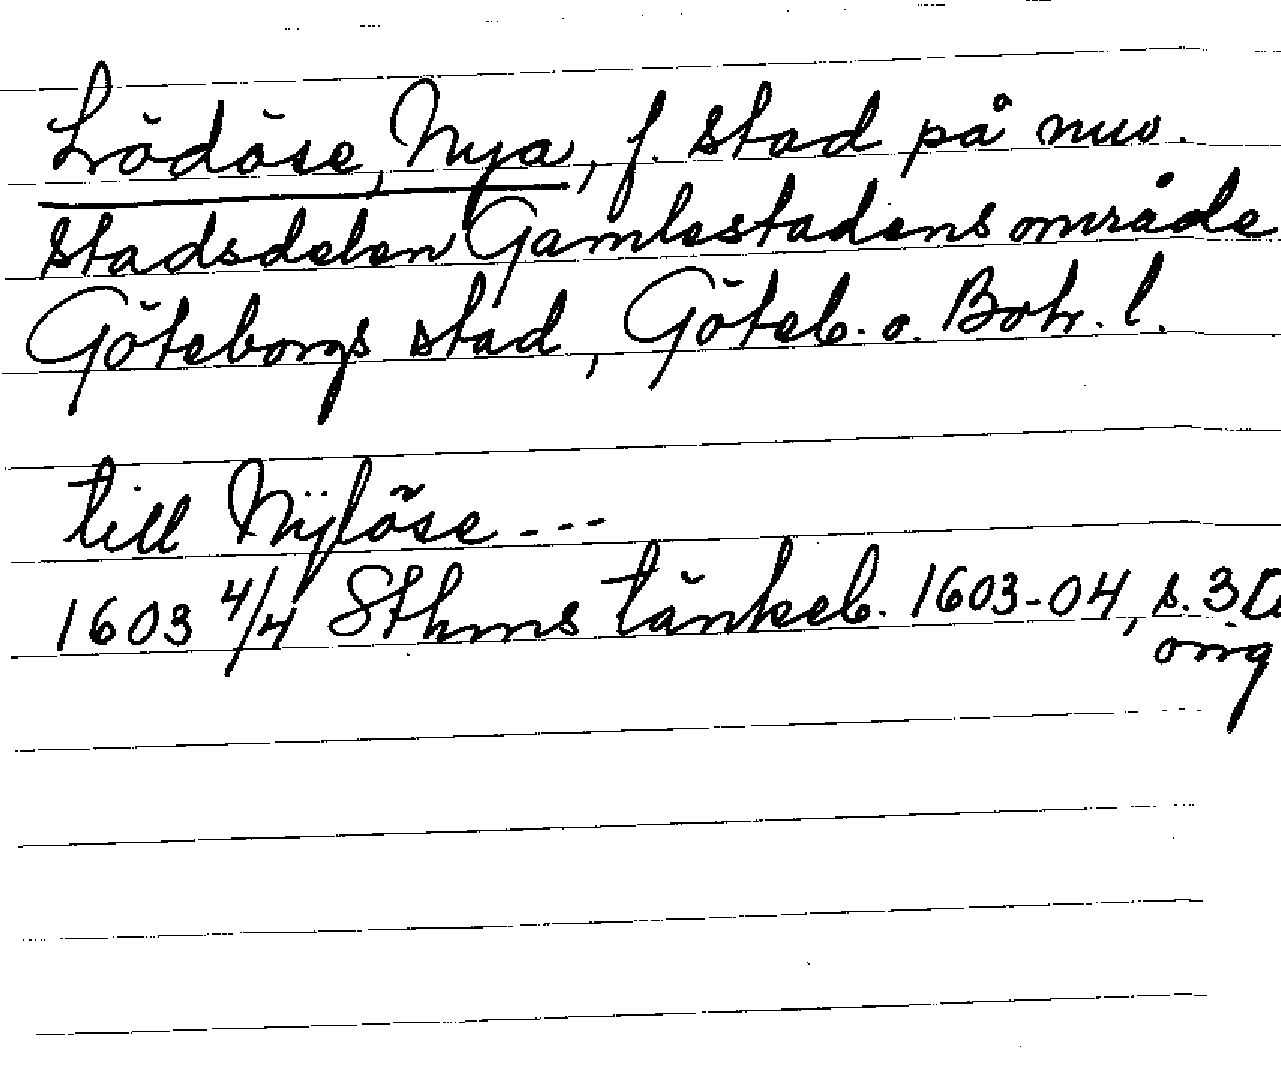 Lödöse, Nya, f. stad på nuv.
stadsdelen Gamlestadens område
Göteborgs stad, Göteb. o. Boh. l.
till Nÿlöse ---
1603 4/4 Sthms tänkeb. 1603-04, s. 3 [
orig